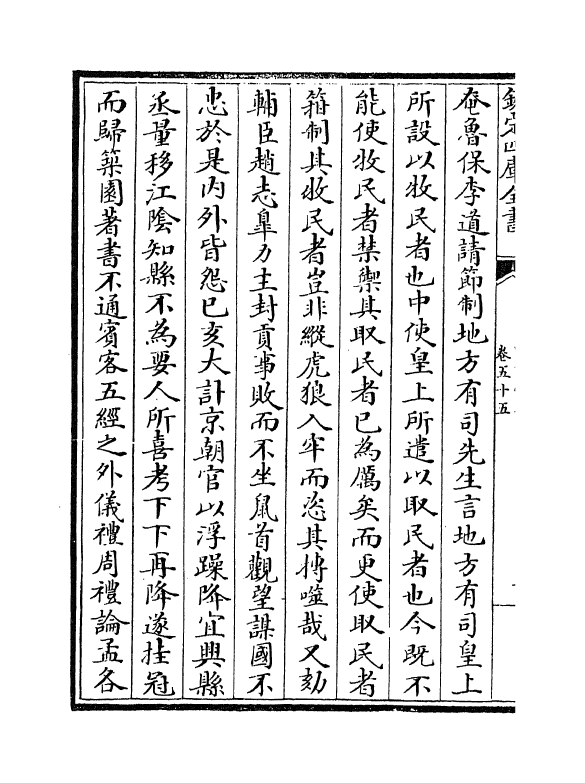 欽定四庫全書
卷五十五
奄魯保李道請節制地方有司先生言地方有司皇上
所設以牧民者也中使皇上所遣以取民者也今既不
能使牧民者禁禦其取民者已為厲矣而更使取民者
箝制其牧民者豈非縱虎狼入牢而恣其摶噬哉又劾
輔臣趙志臯力主封貢事敗而不坐鼠首觀望謀國不
忠於是内外皆怨己亥大計京朝官以浮躁降宜興縣
丞量移江隂知縣不為要人所喜考下下再降遂挂冠
而歸築園著書不通賓客五經之外儀禮周禮論孟各